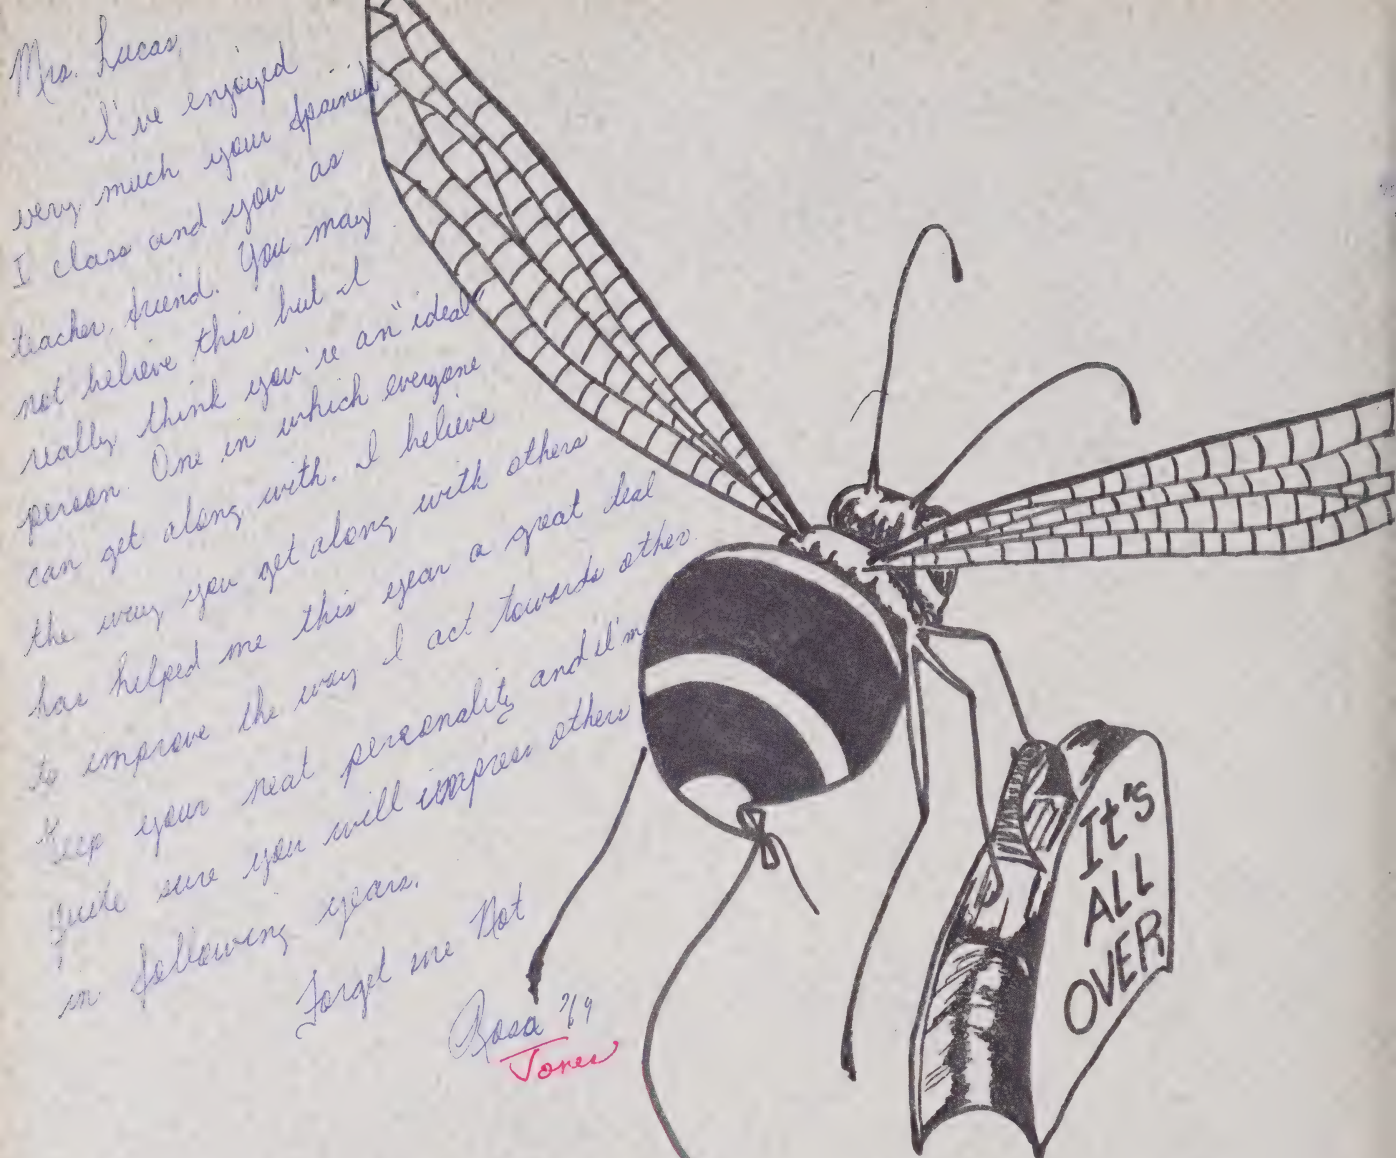 Mrs. Lucas,
I've enjoyed
very much your Spainish
I class and you as
teacher, friend. You may
not believe this but I
really think you're an "ideal"
person. One in which everyone
can get along with. I believe
the way you get along with others
has helped me this year a great deal
to improve the way I act towards other.
Keep your neat personality and I'm
quite sure you will impress others
in following years.
Forget me Not
Rosa '79
Jones
It's
ALL
OVER